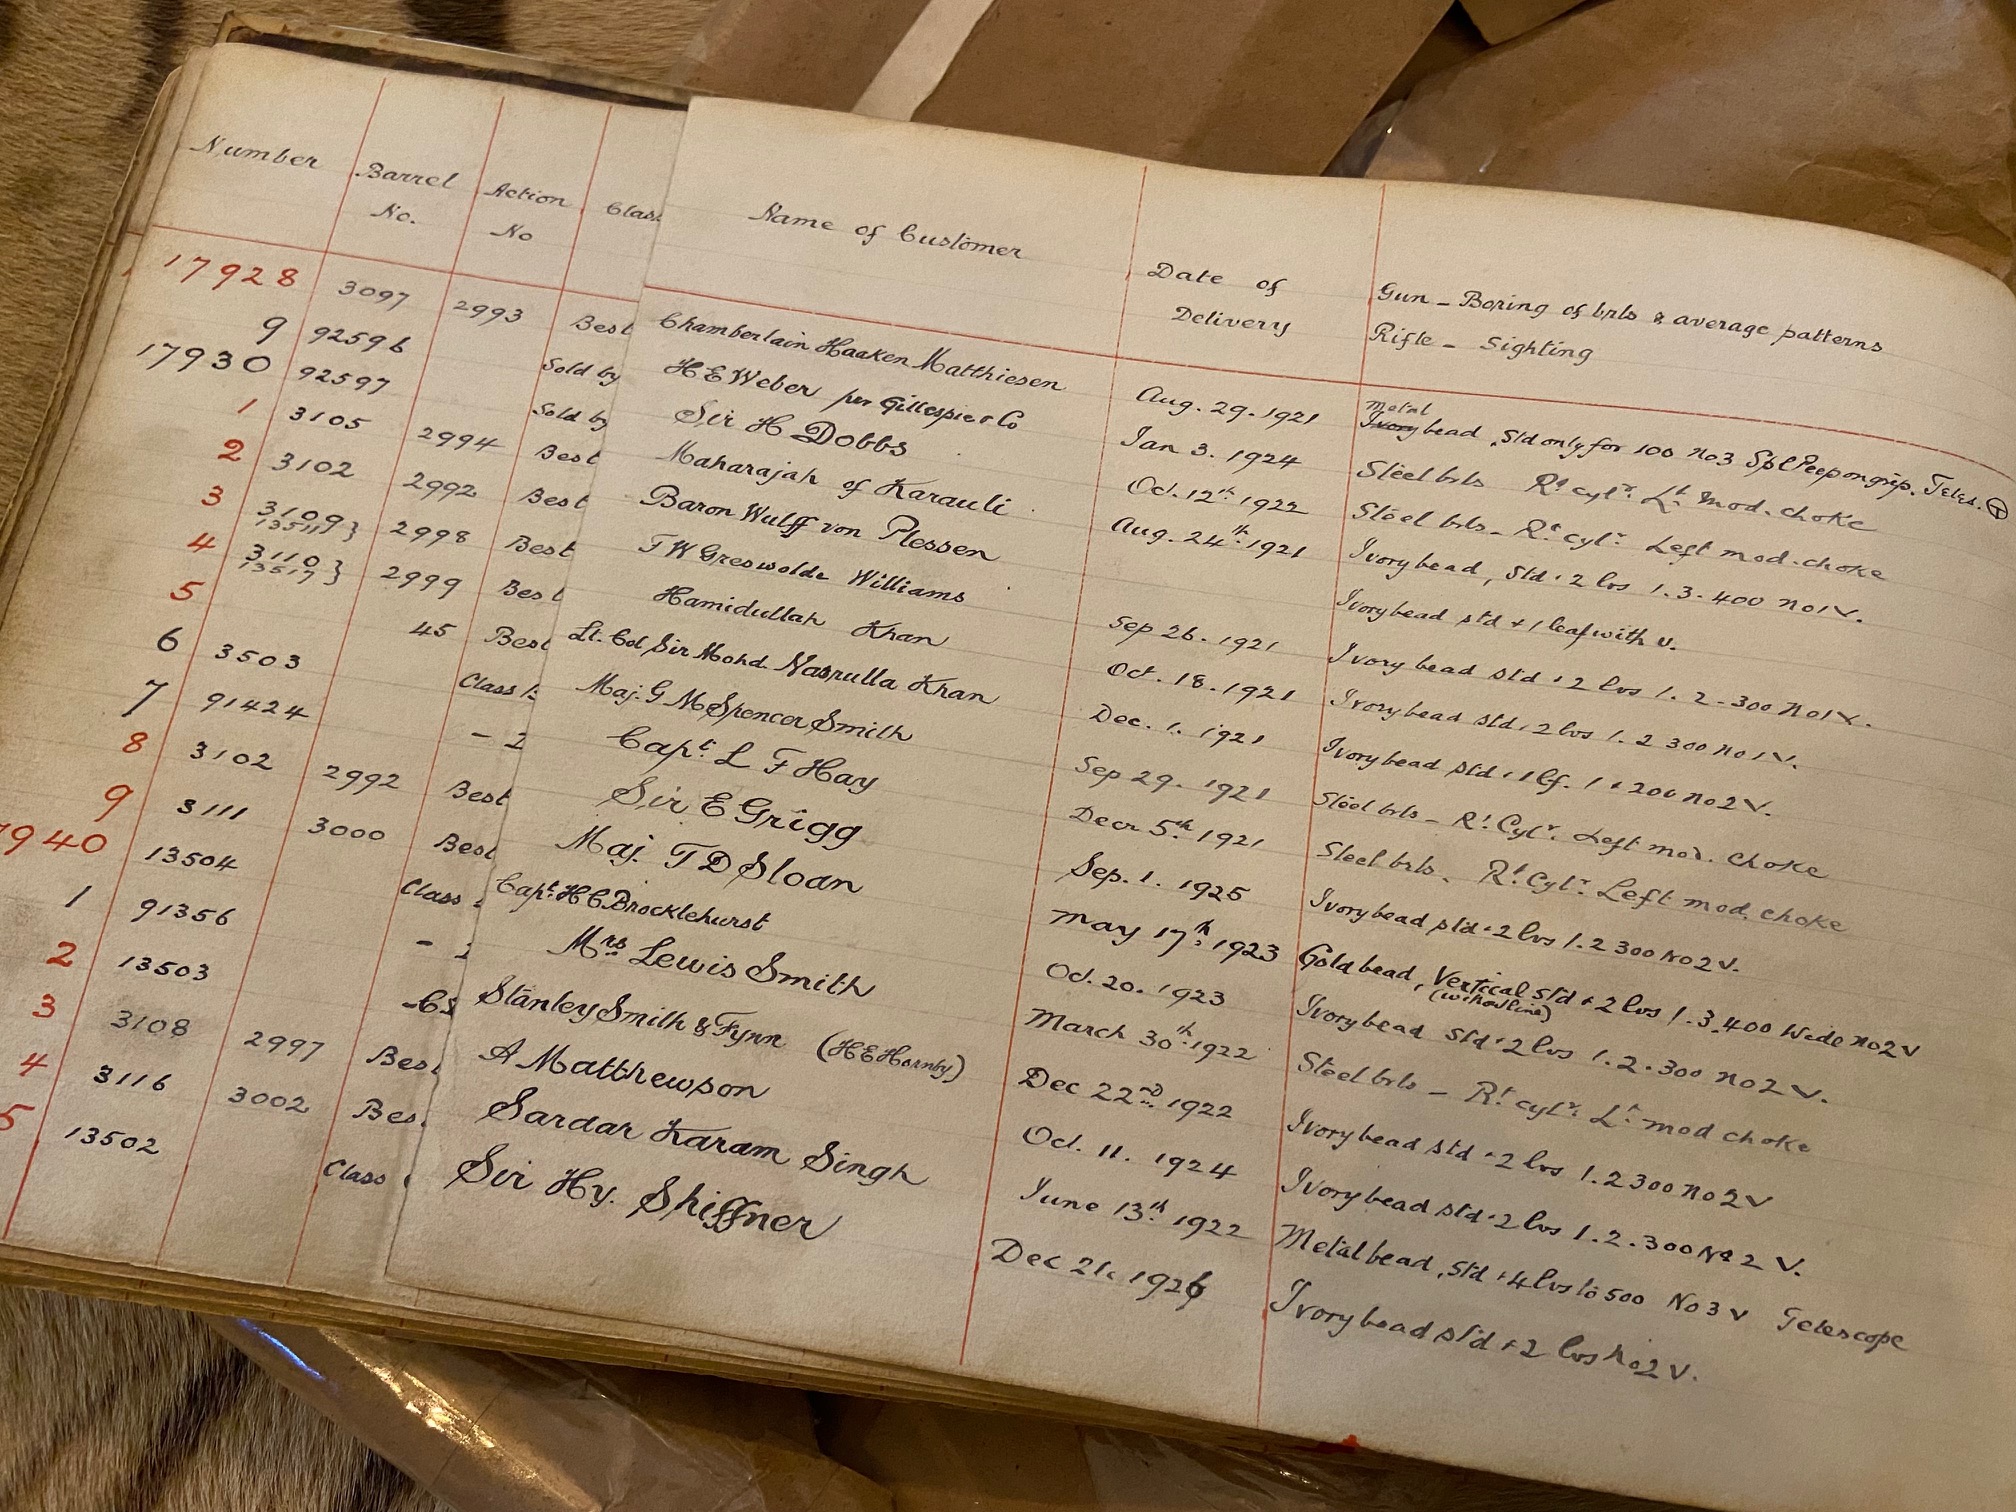 Number Barrel No. Action No Class Name of Customer Date of Delivery Gun - Boring of brls & average patterns
Rifle - Sighting
17928 3097 2993 Best Chamberlain Haaken Matthiesen Aug. 29. 1921 Metal Ivory bead, Std only for 100 No3 Spl Peep on grip. Teles.
9 92596 Sold by H E Weber per Gillespie & Co Jan 3. 1924 Steel brls Rt cylr. Lt. Mod. choke
17930 92597 Sold by Sir H Dobbs Oct. 12th 1922 Steel brls - Rt cylr. Left mod. choke
1 3105 2994 Best Maharajah of Karauli Aug. 24th 1921 Ivory bead, Std + 2 lvs 1. 3. 400 No1 V.
2 3102 2992 Best Baron Wulff von Plessen Ivory bead std + 1 leaf with V.
3 3109 13511 } 2998 Best F W Greswolde Williams Sep 26. 1921 Ivory bead std + 2 lvs 1. 2 - 300 No1 V.
4 3110 13517 } 2999 Best Hamidullah Khan Oct. 18. 1921 Ivory bead std + 2 lvs 1. 2 300 No1 V.
5 45 Best Lt. Col Sir Mohd Nasrulla Khan Dec. 1. 1921 Ivory bead std + 1 lf. 1 + 200 No2 V.
6 3503 Class Maj. G M Spencer Smith Sep 29. 1921 Steel brls - Rt. Cylr. Left mod. choke
7 91424 - 2 Capt. L F Hay Decr 5th 1921 Steel brls. Rt. Cylr. Left mod. choke
8 3102 2992 Best Sir E Grigg Sep. 1. 1925 Ivory bead std + 2 lvs 1. 2 300 No2 V.
9 3111 3000 Best Maj. T D Sloan May 17th 1923 Gold bead, Vertical Std + 2 lvs 1. 3. 400 Wide No2 V
7940 13504 Class Capt. H C Brocklehurst Oct. 20. 1923 Ivory bead std + 2 lvs 1. 2. 300 No2 V.
1 91356 - Mrs Lewis Smith March 30th 1922 Steel brls - Rt cylr. Lt. mod choke
2 13503 Stanley Smith & Fynn (H E Hornby) Dec 22nd 1922 Ivory bead std + 2 lvs 1. 2 300 No2 V
3 3108 2997 Best A Matthewson Oct. 11. 1924 Ivory bead std + 2 lvs 1. 2. 300 No 2 V.
4 3116 3002 Bes Sardar Karam Singh June 13th 1922 Metal bead, std + 4 lvs to 500 No3 V Telescope
5 13502 Class Sir Hy. Shiffner Dec 21. 1926 Ivory bead std + 2 lvs No2 V.